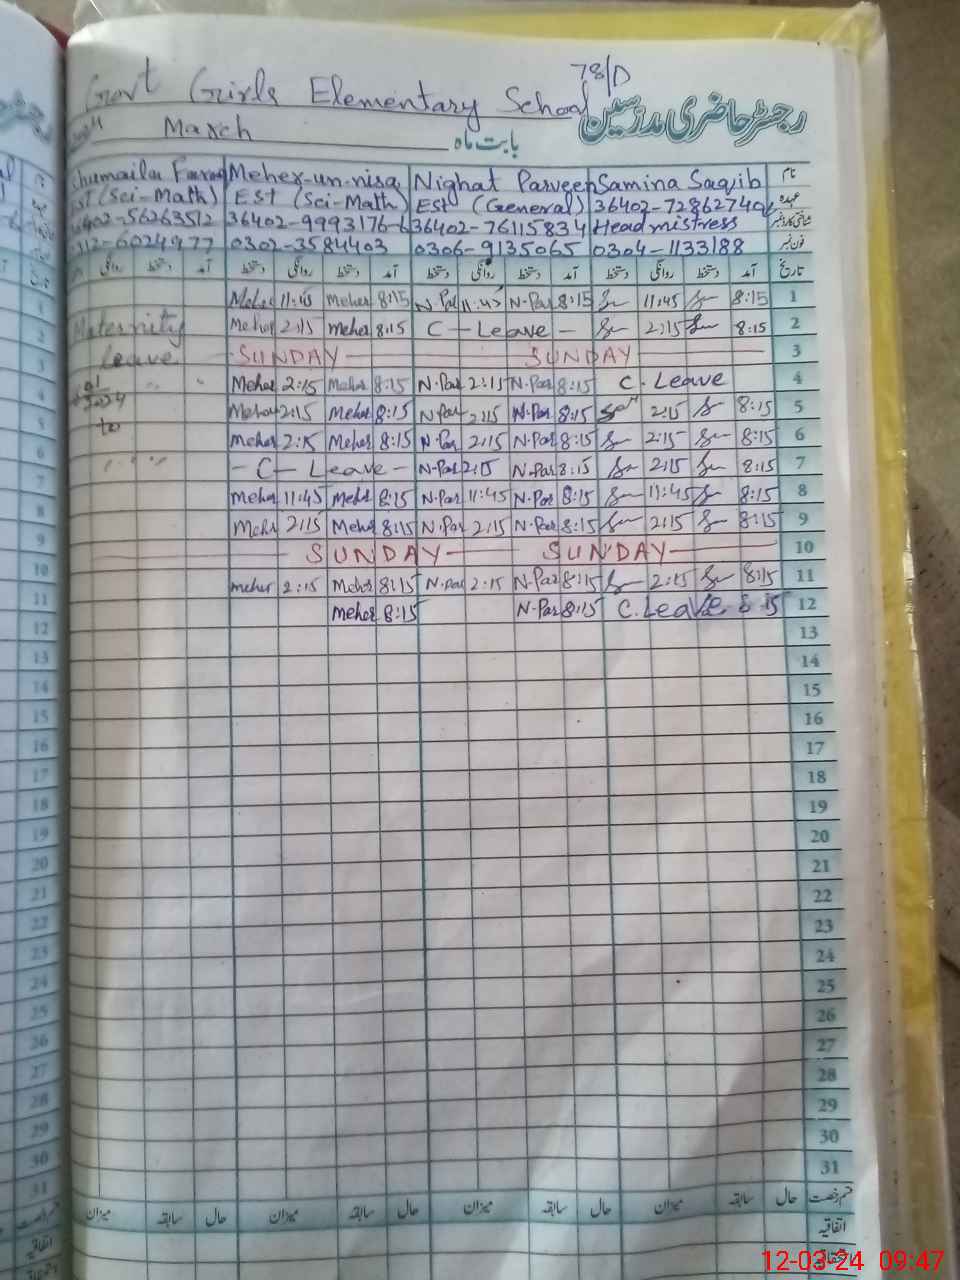 78/D
Govt Girls Elementary School
رجسٹر حاضری مدرسین
March بابت ماہ
Meher-un-nisa Nighat Parveen Samina Saqib نام
(Sci-Math) EST (Sci-Math) EST (General) 36402-7286274 عہدہ
56263512 36402-9993176-6 36402-76115834 Headmistress شناختی کارڈ نمبر
6024977 0302-3584403 0306-9135065 0304-1133188 فون نمبر
تاریخ آمد دستخط روانگی دستخط آمد دستخط روانگی دستخط آمد دستخط روانگی دستخط آمد دستخط
Meher 11:45 Meher 8:15 N.Par 11:45 N.Par 8:15 11:45 8:15 1
Maternity Meher 2:15 Meher 8:15 C-Leave- 2:15 8:15 2
Leave SUNDAY SUNDAY 3
Meher 2:15 Meher 8:15 N.Par 2:15 N.Par 8:15 C.Leave 4
2024 Meher 2:15 Meher 8:15 N.Par 2:15 N.Par 8:15 2:15 8:15 5
to Meher 2:15 Meher 8:15 N.Par 2:15 N.Par 8:15 2:15 8:15 6
-C-Leave- N.Par 2:15 N.Par 8:15 2:15 8:15 7
Meher 11:45 Meher 8:15 N.Par 11:45 N.Par 8:15 11:45 8:15 8
Mehr 2:15 Meher 8:15 N.Par 2:15 N.Par 8:15 2:15 8:15 9
SUNDAY SUNDAY 10
meher 2:15 Meher 8:15 N.Par 2:15 N.Par 8:15 2:15 8:15 11
Meher 8:15 N.Par 8:15 C.Leave 8:15 12
13
14
15
16
17
18
19
20
21
22
23
24
25
26
27
28
29
30
31
قسم رخصت حال سابقہ میزان حال سابقہ میزان حال سابقہ میزان حال سابقہ میزان
اتفاقیہ
12-03-24 09:47